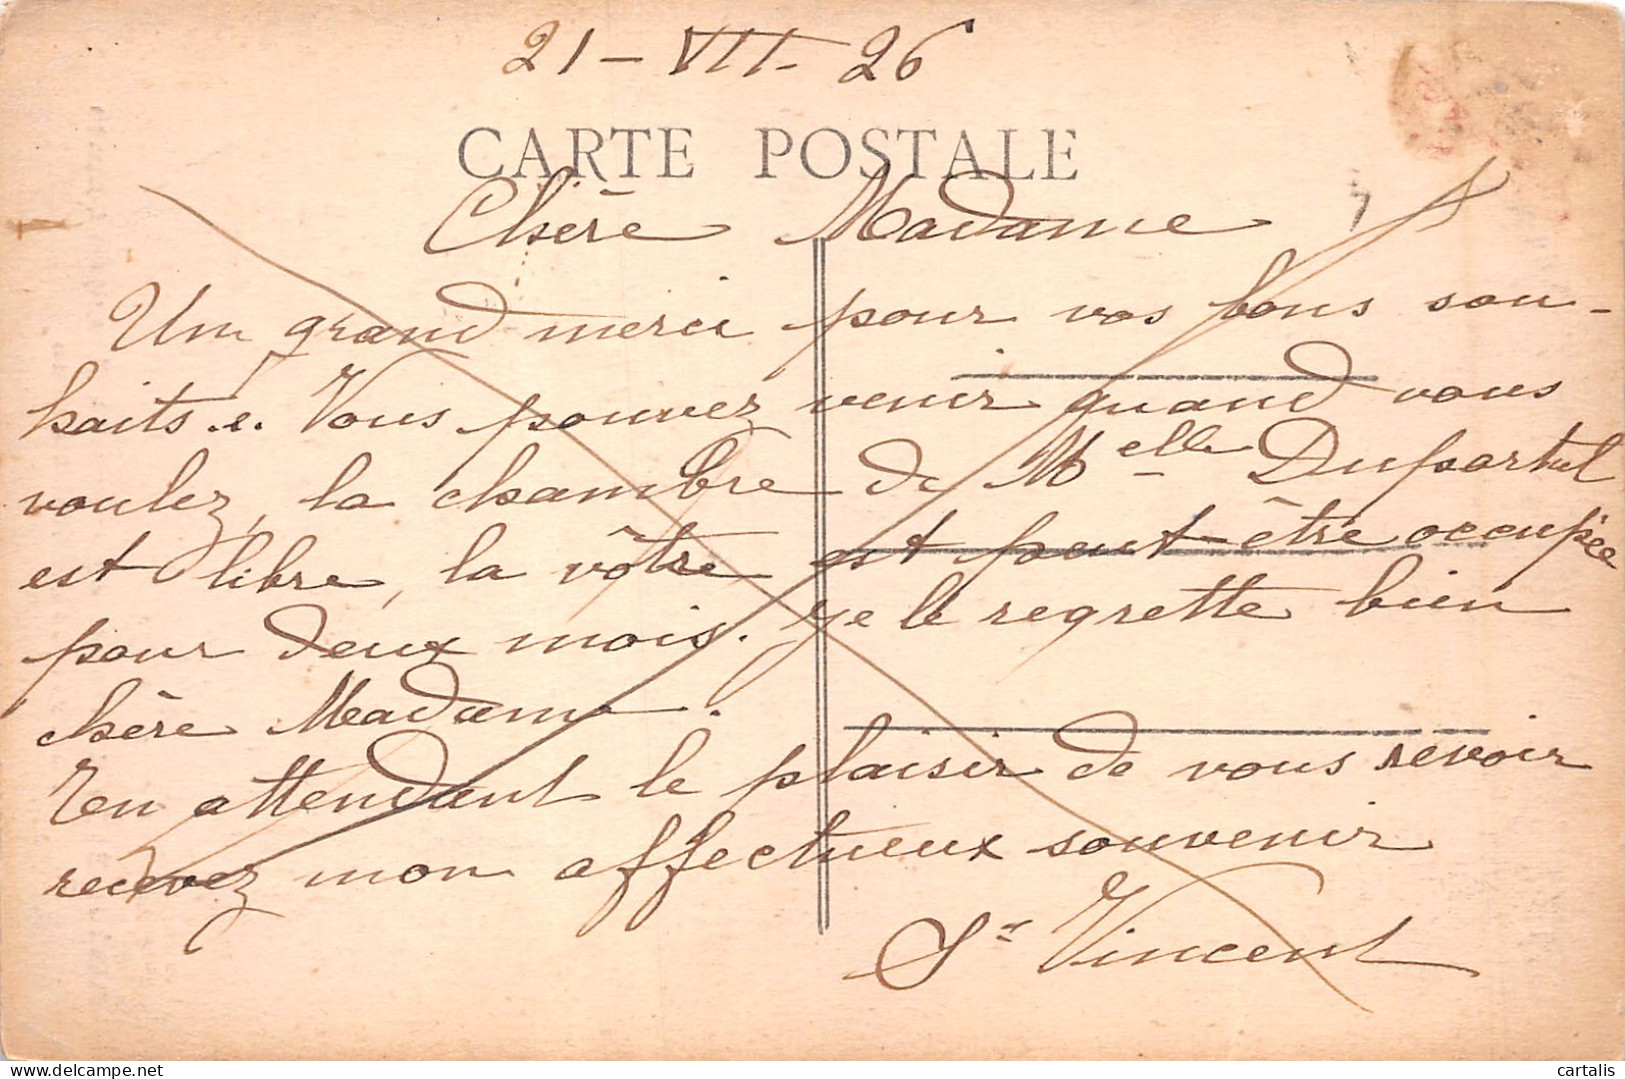 21 - VII - 26
CARTE POSTALE
Chère Madame
Un grand merci pour vos bons sou-
haits. Vous pouvez venir quand vous
voulez, la chambre de Melle Dupartal
est libre, la vôtre est peut-être occupée
pour deux mois. Je le regrette bien
chère Madame.
En attendant le plaisir de vous revoir
recevez mon affectueux souvenir
Sr Vincent
delcampe.net
cartalis